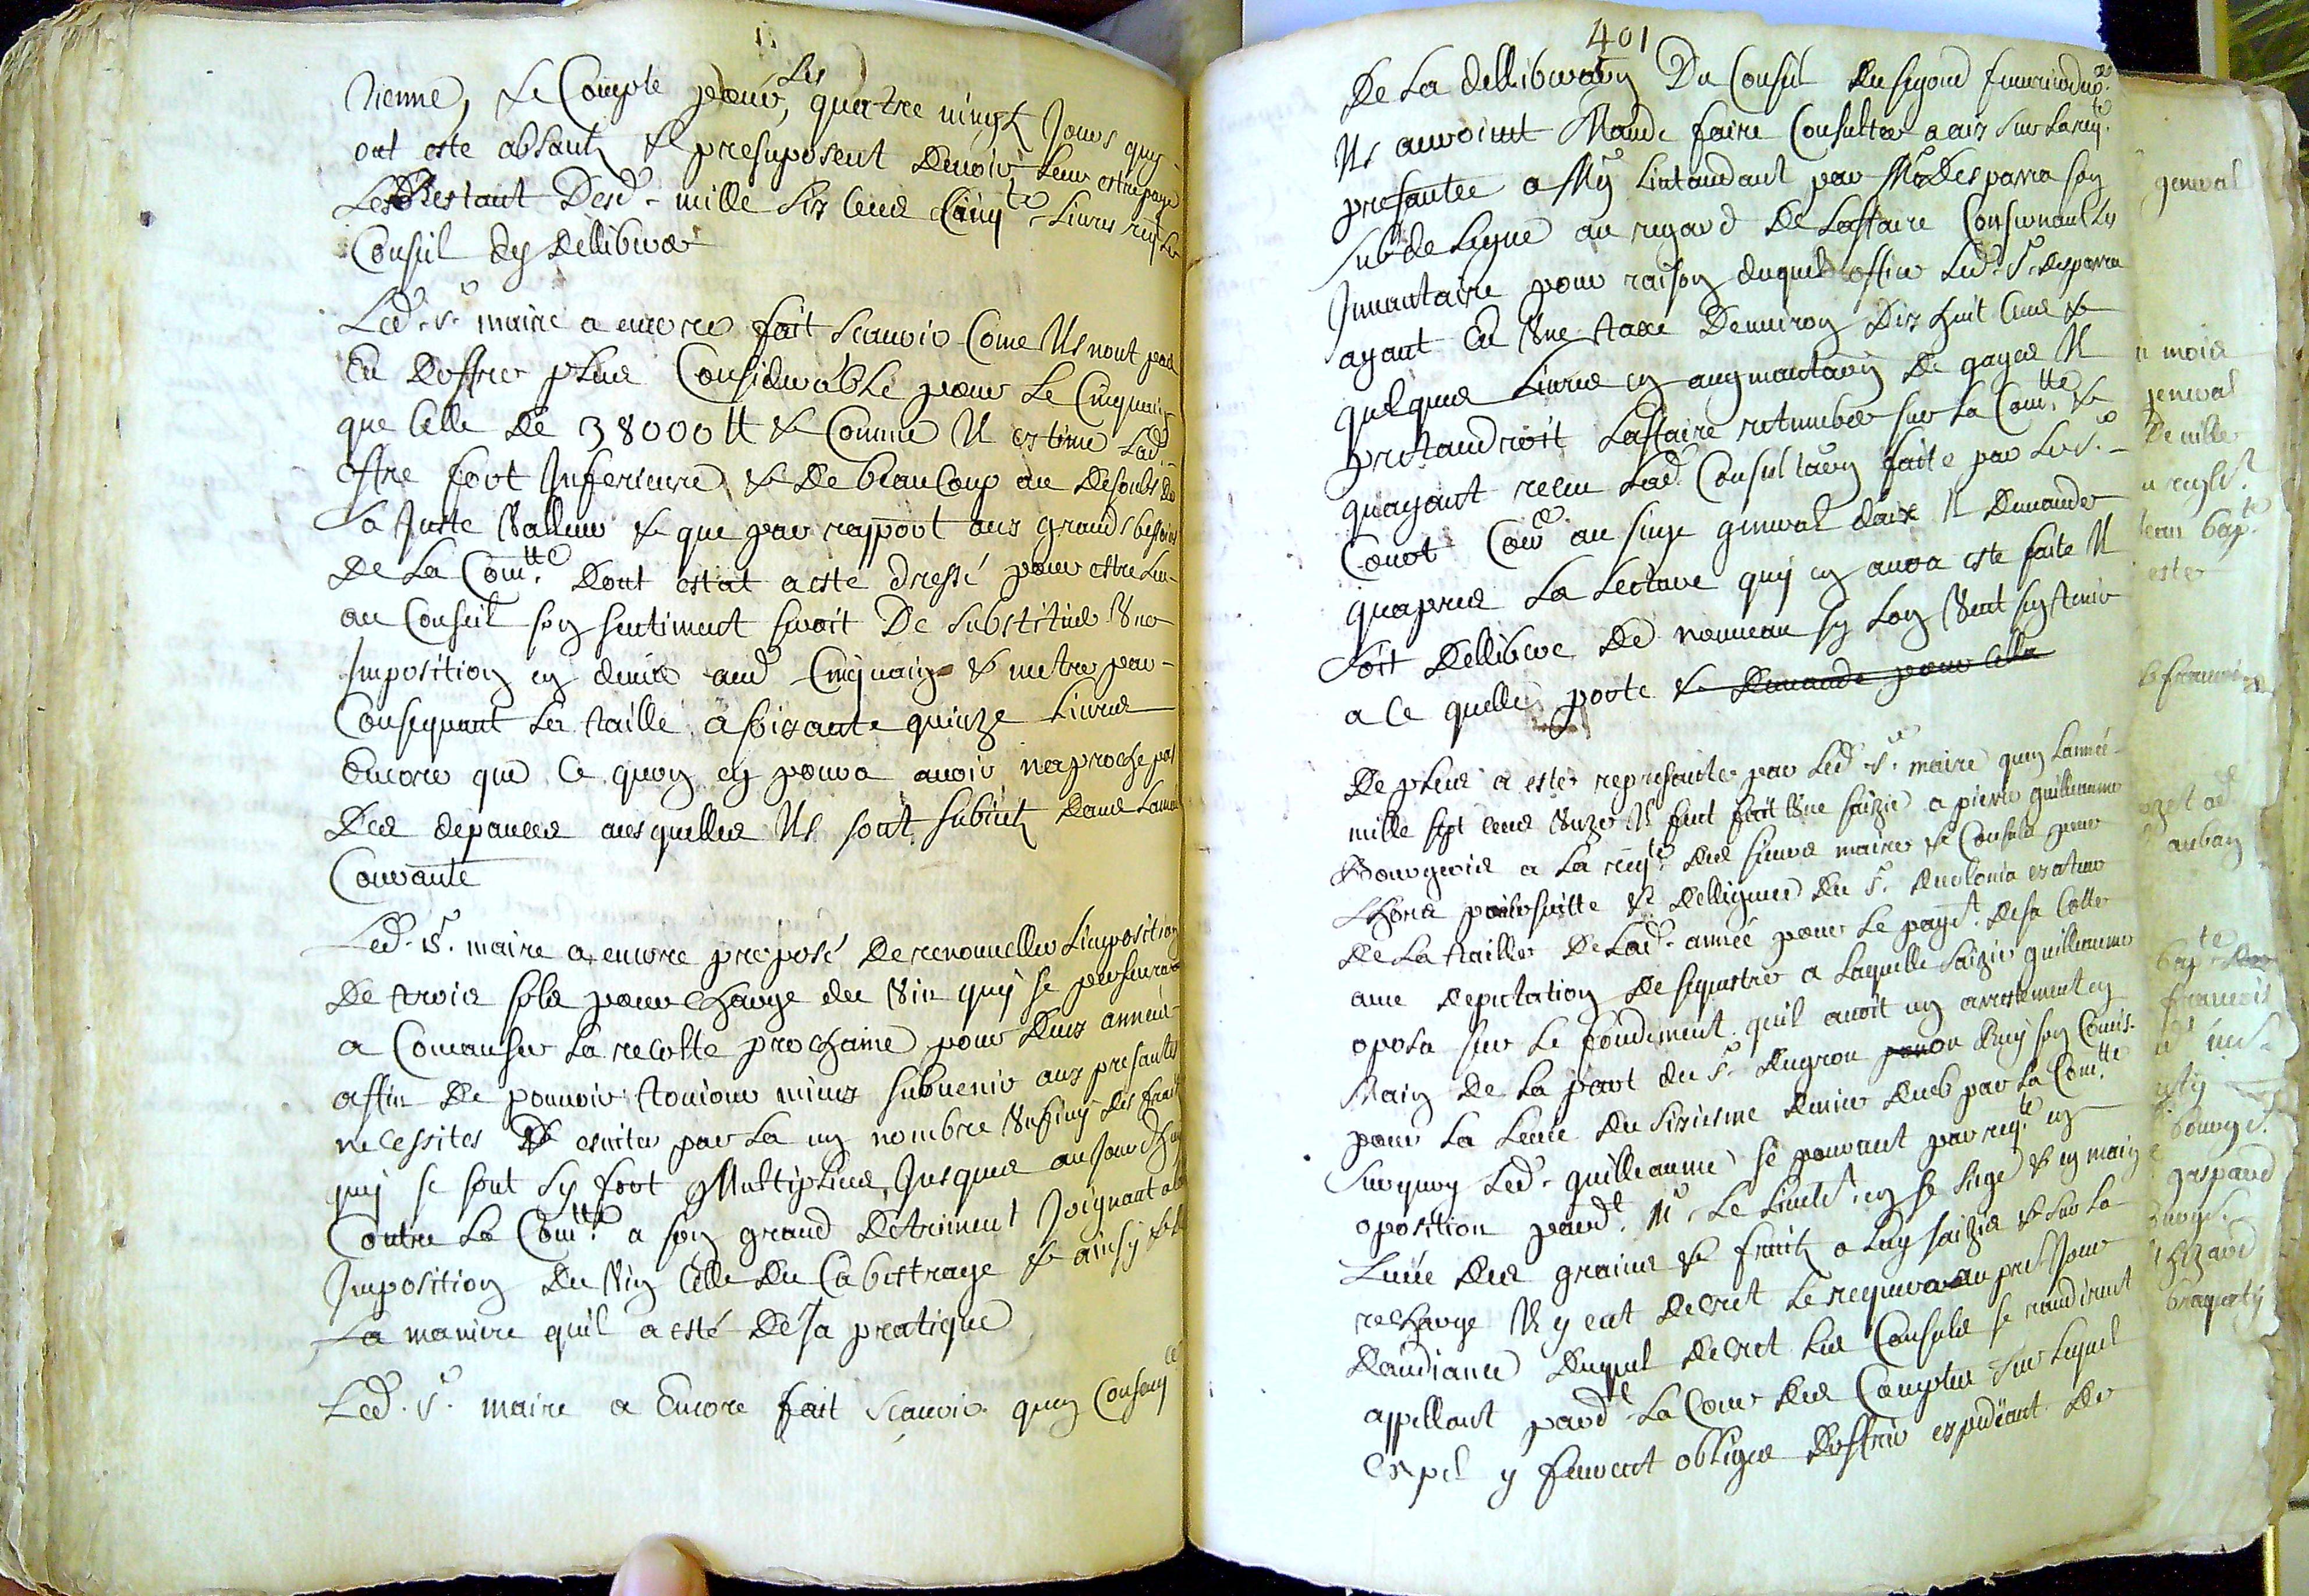 vienne, le Compte pour les quatre vingt Jours quy
ont este absantz & presuposent devoir leur estre payé
Le Restant Desd. mille six cens Cinq livres reqte
Conseil dy Deliberer
Led. sr maire a encore fait scavoir Come Ils nont pas
Eu Doffre plus Considerable pour le Cinquain
que Celle de 38000 tt & Comme Il estime lad
offre fort Inferieure & De beaucoup au Desoubs de
sa Juste valleur & que par rapport aux grands besoins
De la Comtte Dont estat a esté dressé pour estre leu
au Conseil son sentiment seroit De substituer une
Imposition en deniers aud Cinquain & metre par
Consequant la taille a soixante quinze livres
Encore que Ce quon en pourra avoir naproche pas
Des depances ausquelles Ils sont subietz Dans lannee
Courante
Led. sr. maire a encore proposé De renouveller limposition
De trois sols pour charge du vin quy se
a Comanser la recolte prochaine pour Deux années
affin De pouvoir toujour mieux subvenir aux presantes
necessites & esviter par la un nombre Infiny des fraix
quy se sont sy fort Multiplies Jusques aujourdhuy
Contre la Comtte a son grand Detriment Joignant a lad
Imposition Du vin Celle Du Cabestrage & ainsy &
La maniere quil a esté Desja pratiqué
Led. sr. maire a Encore fait scavoir quen Conseqce
401
De la delliberaon Du Conseil du segond fevrier dernr
Ils auroint Mandé faire Consulter a aix sur la reqte
presantée a Mgr Lintandant par Mr Desparra son
subdelegué au regard De laffaire Consernant les
Inventaire pour raison duquel office led. sr. desparra
ayant Eu une taxe Denviron Dix huit Cens &
quelques livres en augmantaon De gages Il
pretandroit laffaire retumber sur la Comtte &
quayant receu lad. Consultaon faite par le sr.
Canot au siege general daix Il Demande
quapres la lecture quy en aura este faite Il
soit Dellibere De nouveau sy lon veut sen tenir
a Ce quelle porte & Demande pour Cella
De plus a esté representer par led. sr. maire quen lannée
mille sept cens unze Il feut fait une saizie a pierre guilheaume
Bourgeois a la reqte des sieurs maire & Consuls pour
lhors poursuitte & delligence du sr. exateur
De la taille De lad. année pour le payt. de sa Cotte
avec depretation De sequestre a laquelle saizie guilheaume
oposa sur le fondement quil avoit un arrestement en
Main de la part du sr. Dugrou son Comis
pour la levée Du sixiesme denier deub par la Comtte
surquoy led. guilheaume se pourvut par reqte en
oposition pardt. Mr. le lieutt. en se siege & en main
levée des grains & fruitz a luy saizis & sur la
recharge Il y eut decret le requera au pred. Jour
Daudiance duquel decret les Consuls se randirent
appellant pardt la Cour des Comptes sur lequel
Expel y feurent obliges Doffrir expediant De
general
moix
general
De ville
bapte
ester
franco
bapte
francois
gaspard